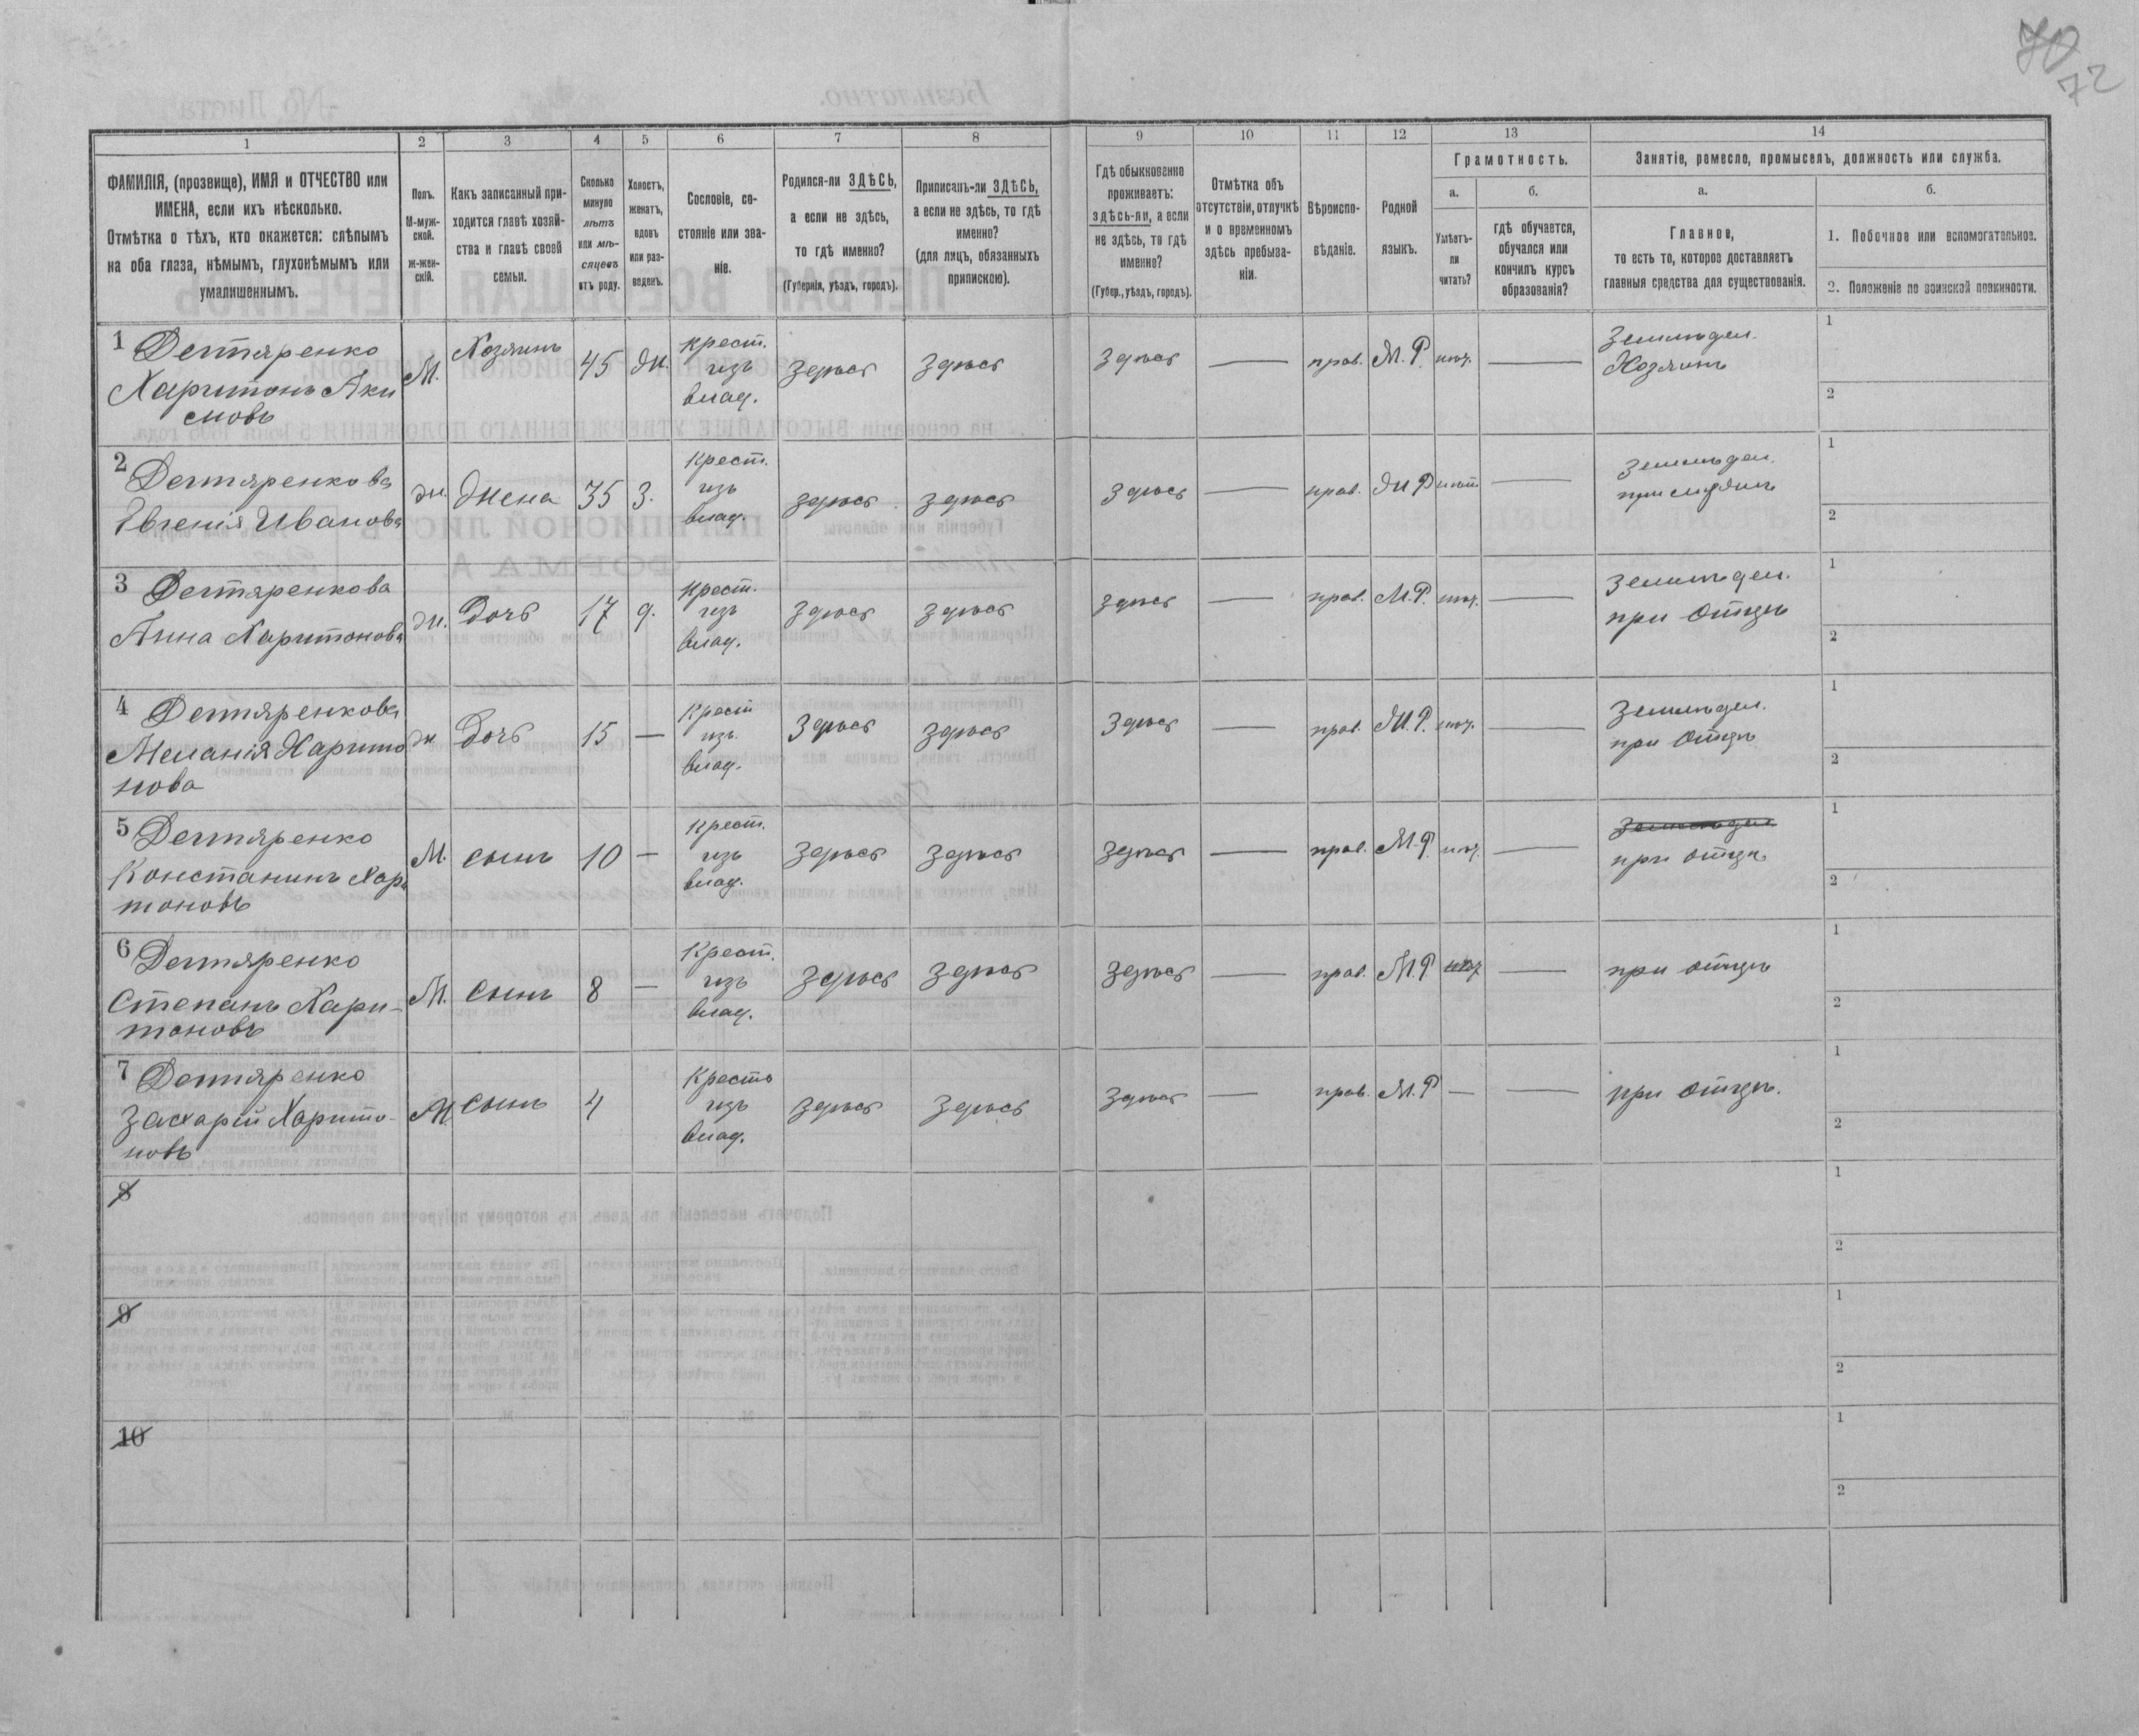 70
72
1
2
3
4
5
6
7
8
9
10
11
12
13
14
ФАМИЛІЯ, (прозвище), ИМЯ и ОТЧЕСТВО или
ИМЕНА, если ихъ нѣсколько.
Отмѣтка о тѣхъ, кто окажется: слѣпымъ
на оба глаза, нѣмымъ, глухонѣмымъ или
умалишеннымъ.
Полъ.
М-муж-
ской.
ж-жен-
скій.
Какъ записанный при-
ходится главѣ хозяй-
ства и главѣ своей
семьи.
Сколько
минуло
лѣтъ
или мѣ-
сяцевъ
отъ роду.
Холостъ,
женатъ,
вдовъ
или раз-
веденъ.
Сословіе, со-
стояніе или зва-
ніе.
Родился-ли ЗДѢСЬ,
а если не здѣсь,
то гдѣ именно?
(Губернія, уѣздъ, городъ).
Приписанъ-ли ЗДѢСЬ,
а если не здѣсь, то гдѣ
именно?
(для лицъ, обязанныхъ
припискою).
Гдѣ обыкновенно
проживаетъ:
здѣсь-ли, а если
не здѣсь, то гдѣ
именно?
(Губер., уѣздъ, городъ).
Отмѣтка объ
отсутствіи, отлучкѣ
и о временномъ
здѣсь пребыва-
ніи.
Вѣроиспо-
вѣданіе.
Родной
языкъ.
Грамотность.
а.
б.
Умѣетъ-
ли
читать?
гдѣ обучается,
обучался или
кончилъ курсъ
образованія?
Занятіе, ремесло, промыселъ, должность или служба.
а.
б.
Главное,
то есть то, которое доставляетъ
главныя средства для существованія.
1. Побочное или вспомогательное.
2. Положеніе по воинской повинности.
1 Дегтяренко
Харитонъ Аки
мовъ
М. Хозяинъ 45 ж.
крест.
изъ
влад.
Здѣсь Здѣсь Здѣсь — прав. М.Р. нѣт. —
Земледел.
Хозяинъ
1
2
2 Дегтяренкова
Евгенія Иванова
ж. жена 35 З.
Крест.
изъ
влад.
здѣсь здѣсь Здѣсь — прав. М Р нѣт —
Земледел.
1
2
3 Дегтяренкова
Анна Харитонова
ж. Дочь 17 д.
крест.
изъ
влад.
Здѣсь Здѣсь здѣсь — прав. М.Р. нѣт. —
Земледел.
при отцѣ
1
2
4 Дегтяренкова
Меланія Харито
нова
ж Дочь 15 —
Крест
изъ
влад.
Здѣсь Здѣсь Здѣсь — прав. М.Р. нѣт. —
Земледел.
при отцѣ
1
2
5 Дегтяренко
Констанинъ Хари
тоновъ
М. сынъ 10 —
Крест.
изъ
влад.
Здѣсь Здѣсь Здѣсь — прав. М.Р. нѣт. —
Земледел
при отцѣ
1
2
6 Дегтяренко
Степанъ Хари-
тоновъ
М. Сынъ 8 —
Крест.
изъ
влад.
Здѣсь Здѣсь Здѣсь — прав. М.Р нѣт —
при отцѣ
1
2
7 Дегтяренко
Захарій Харито-
новъ
М. Сынъ 4
Кресть
изъ
влад.
Здѣсь Здѣсь Здѣсь — прав. М.Р — —
при отцѣ.
1
2
8
1
2
9
1
2
10
1
2